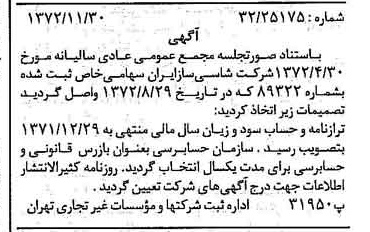 شماره : ۳۲/۲۵۱۷۵ ۱۳۷۲/۱۱/۳۰
آگهی
باستناد صورتجلسه مجمع عمومی عادی سالیانه مورخ
۱۳۷۲/۴/۳۰ شرکت شاسی سازایران سهامی خاص ثبت شده
بشماره ۸۹۳۲۲ که در تاریخ ۱۳۷۲/۸/۲۹ واصل گردید
تصمیمات زیر اتخاذ گردید:
ترازنامه و حساب سود و زیان سال مالی منتهی به ۱۳۷۱/۱۲/۲۹
بتصویب رسید . سازمان حسابرسی بعنوان بازرس قانونی و
حسابرسی برای مدت یکسال انتخاب گردید. روزنامه کثیرالانتشار
اطلاعات جهت درج آگهی‌های شرکت تعیین گردید .
پ۳۱۹۵۰ اداره ثبت شرکتها و مؤسسات غیر تجاری تهران